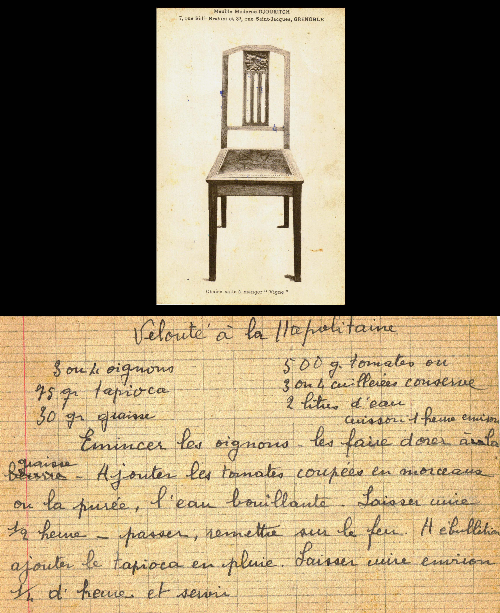 Meuble Moderne DJOURITCH
7, rue Bill- , rue Saint-Jacques, GRENOBLE
Chaise salle à manger "Vigne"
Velouté à la Napolitaine
3 ou 4 oignons
75 gr tapioca
30 gr graisse
500 g. tomates ou
3 ou 4 cuillerées conserve
2 litres d'eau
cuisson 1 heure environ
Emincer les oignons - les faire dorer à la
graisse
beurre - Ajouter les tomates coupées en morceaux
ou la purée, l'eau bouillante. Laisser cuire
1/2 heure - passer, remettre sur le feu. A ebullition
ajouter le tapioca en pluie. Laisser cuire environ
1/4 d'heure et servir